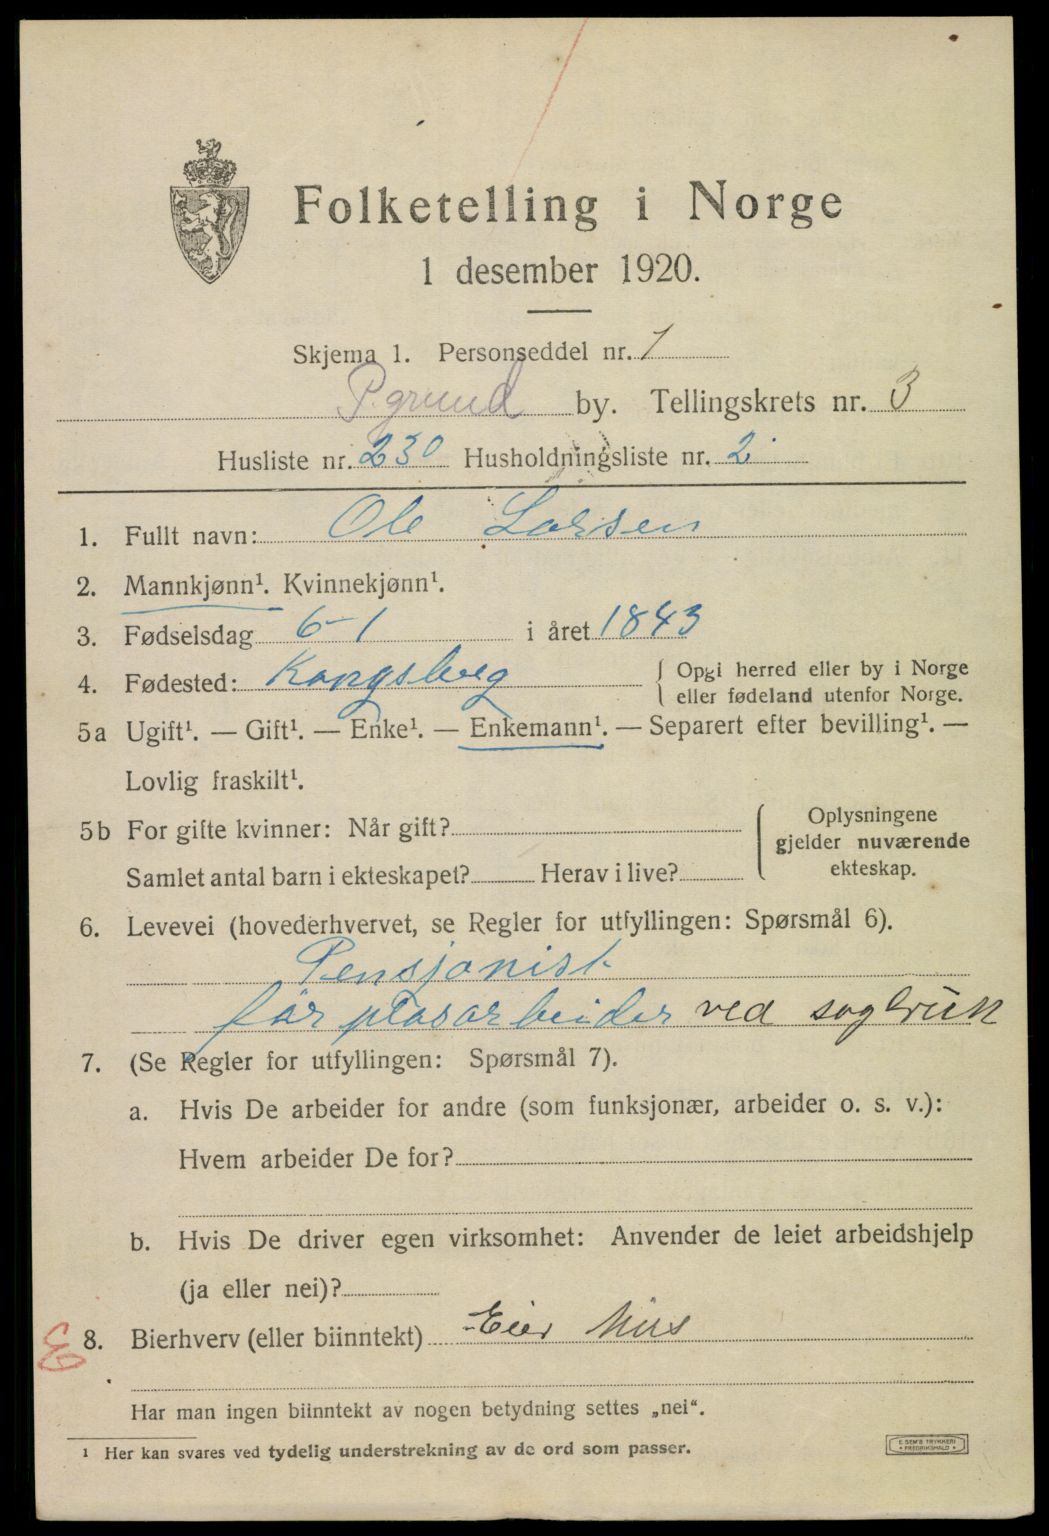 Folketelling i Norge
1 desember 1920.
Skjema 1. Personseddel nr. 1
P.grund by. Tellingskrets nr. 3
Husliste nr. 230 Husholdningsliste nr. 2
1. Fullt navn: Ole Larsen
2. Mannkjønn¹. Kvinnekjønn¹.
3. Fødselsdag 6-1 i året 1843
4. Fødested: Kongsberg { Opgi herred eller by i Norge
eller fødeland utenfor Norge.
5a Ugift¹. — Gift¹. — Enke¹. — Enkemann¹. — Separert efter bevilling¹. —
Lovlig fraskilt¹.
5b For gifte kvinner: Når gift?
Samlet antal barn i ekteskapet? Herav i live?
{ Oplysningene
gjelder nuværende
ekteskap.
6. Levevei (hovederhvervet, se Regler for utfyllingen: Spørsmål 6).
Pensjonist
før plasarbeider ved sagbruk
7. (Se Regler for utfyllingen: Spørsmål 7).
a. Hvis De arbeider for andre (som funksjonær, arbeider o. s. v.):
Hvem arbeider De for?
b. Hvis De driver egen virksomhet: Anvender de leiet arbeidshjelp
(ja eller nei)?
8. Bierhverv (eller biinntekt) Eier Hus
Har man ingen biinntekt av nogen betydning settes „nei“.
¹ Her kan svares ved tydelig understrekning av de ord som passer.
E. SEM'S TRYKKERI
• FREDRIKSHALD •